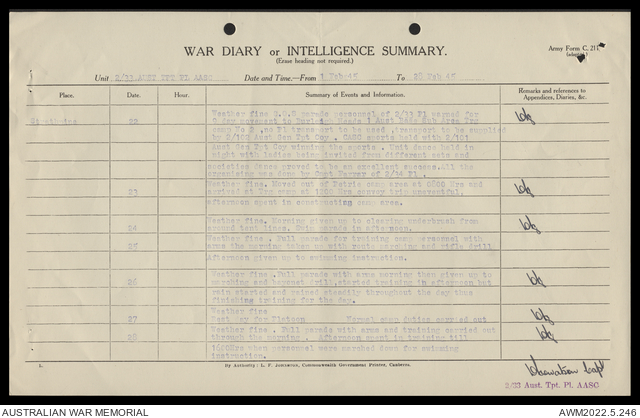 WAR DIARY or INTELLIGENCE SUMMARY.
(Erase heading not required.)
Army Form C. 211
Unit 2/33 AUST TPT PL AASC Date and Time:—From 1 Feb 45 To 28 Feb 45
Place. Date. Hour. Summary of Events and Information. Remarks and references to Appendices, Diaries, &c.
Strathpine 22 Weather fine personnel of 2/33 Pl warned for
movement to Burleigh Heads 1 Aust
camp No 2, no Pl transport to be used, transport to be supplied
by 2/102 Aust Gen Tpt Coy. CASC sports held with 2/101
Aust Gen Tpt Coy winning the sports. Unit dance held in
night with ladies being invited from different eats and
societies dance proved to be an excellent success. All the
organising was done by Capt of 2/14 Pl.
23 Weather fine. Moved out of Petrie camp area at 0800 hrs and
arrived at camp at 1300 hrs convoy trip uneventful.
afternoon spent in constructing camp area.
24 Weather fine. Morning given up to clearing underbrush from
around tent lines. Swim parade in afternoon.
25 Weather fine. Full parade for training camp personnel with
arms the morning taken up with route marching and rifle drill
Afternoon given up to swimming instruction.
26 Weather fine. Full parade with arms morning then given up to
marching and bayonet drill, started training in afternoon but
rain started and rained steadily throughout the day thus
finishing training for the day.
27 Weather fine
Rest day for Platoon Normal camp duties carried out
28 Weather fine. Full parade with arms and training carried out
through the morning. Afternoon spent in training till
1400hrs then personnel were marched down for swimming
instruction.
By Authority: L. F. Johnston, Commonwealth Government Printer, Canberra.
Capt
2/33 Aust. Tpt. Pl. AASC
AUSTRALIAN WAR MEMORIAL
AWM2022.5.246